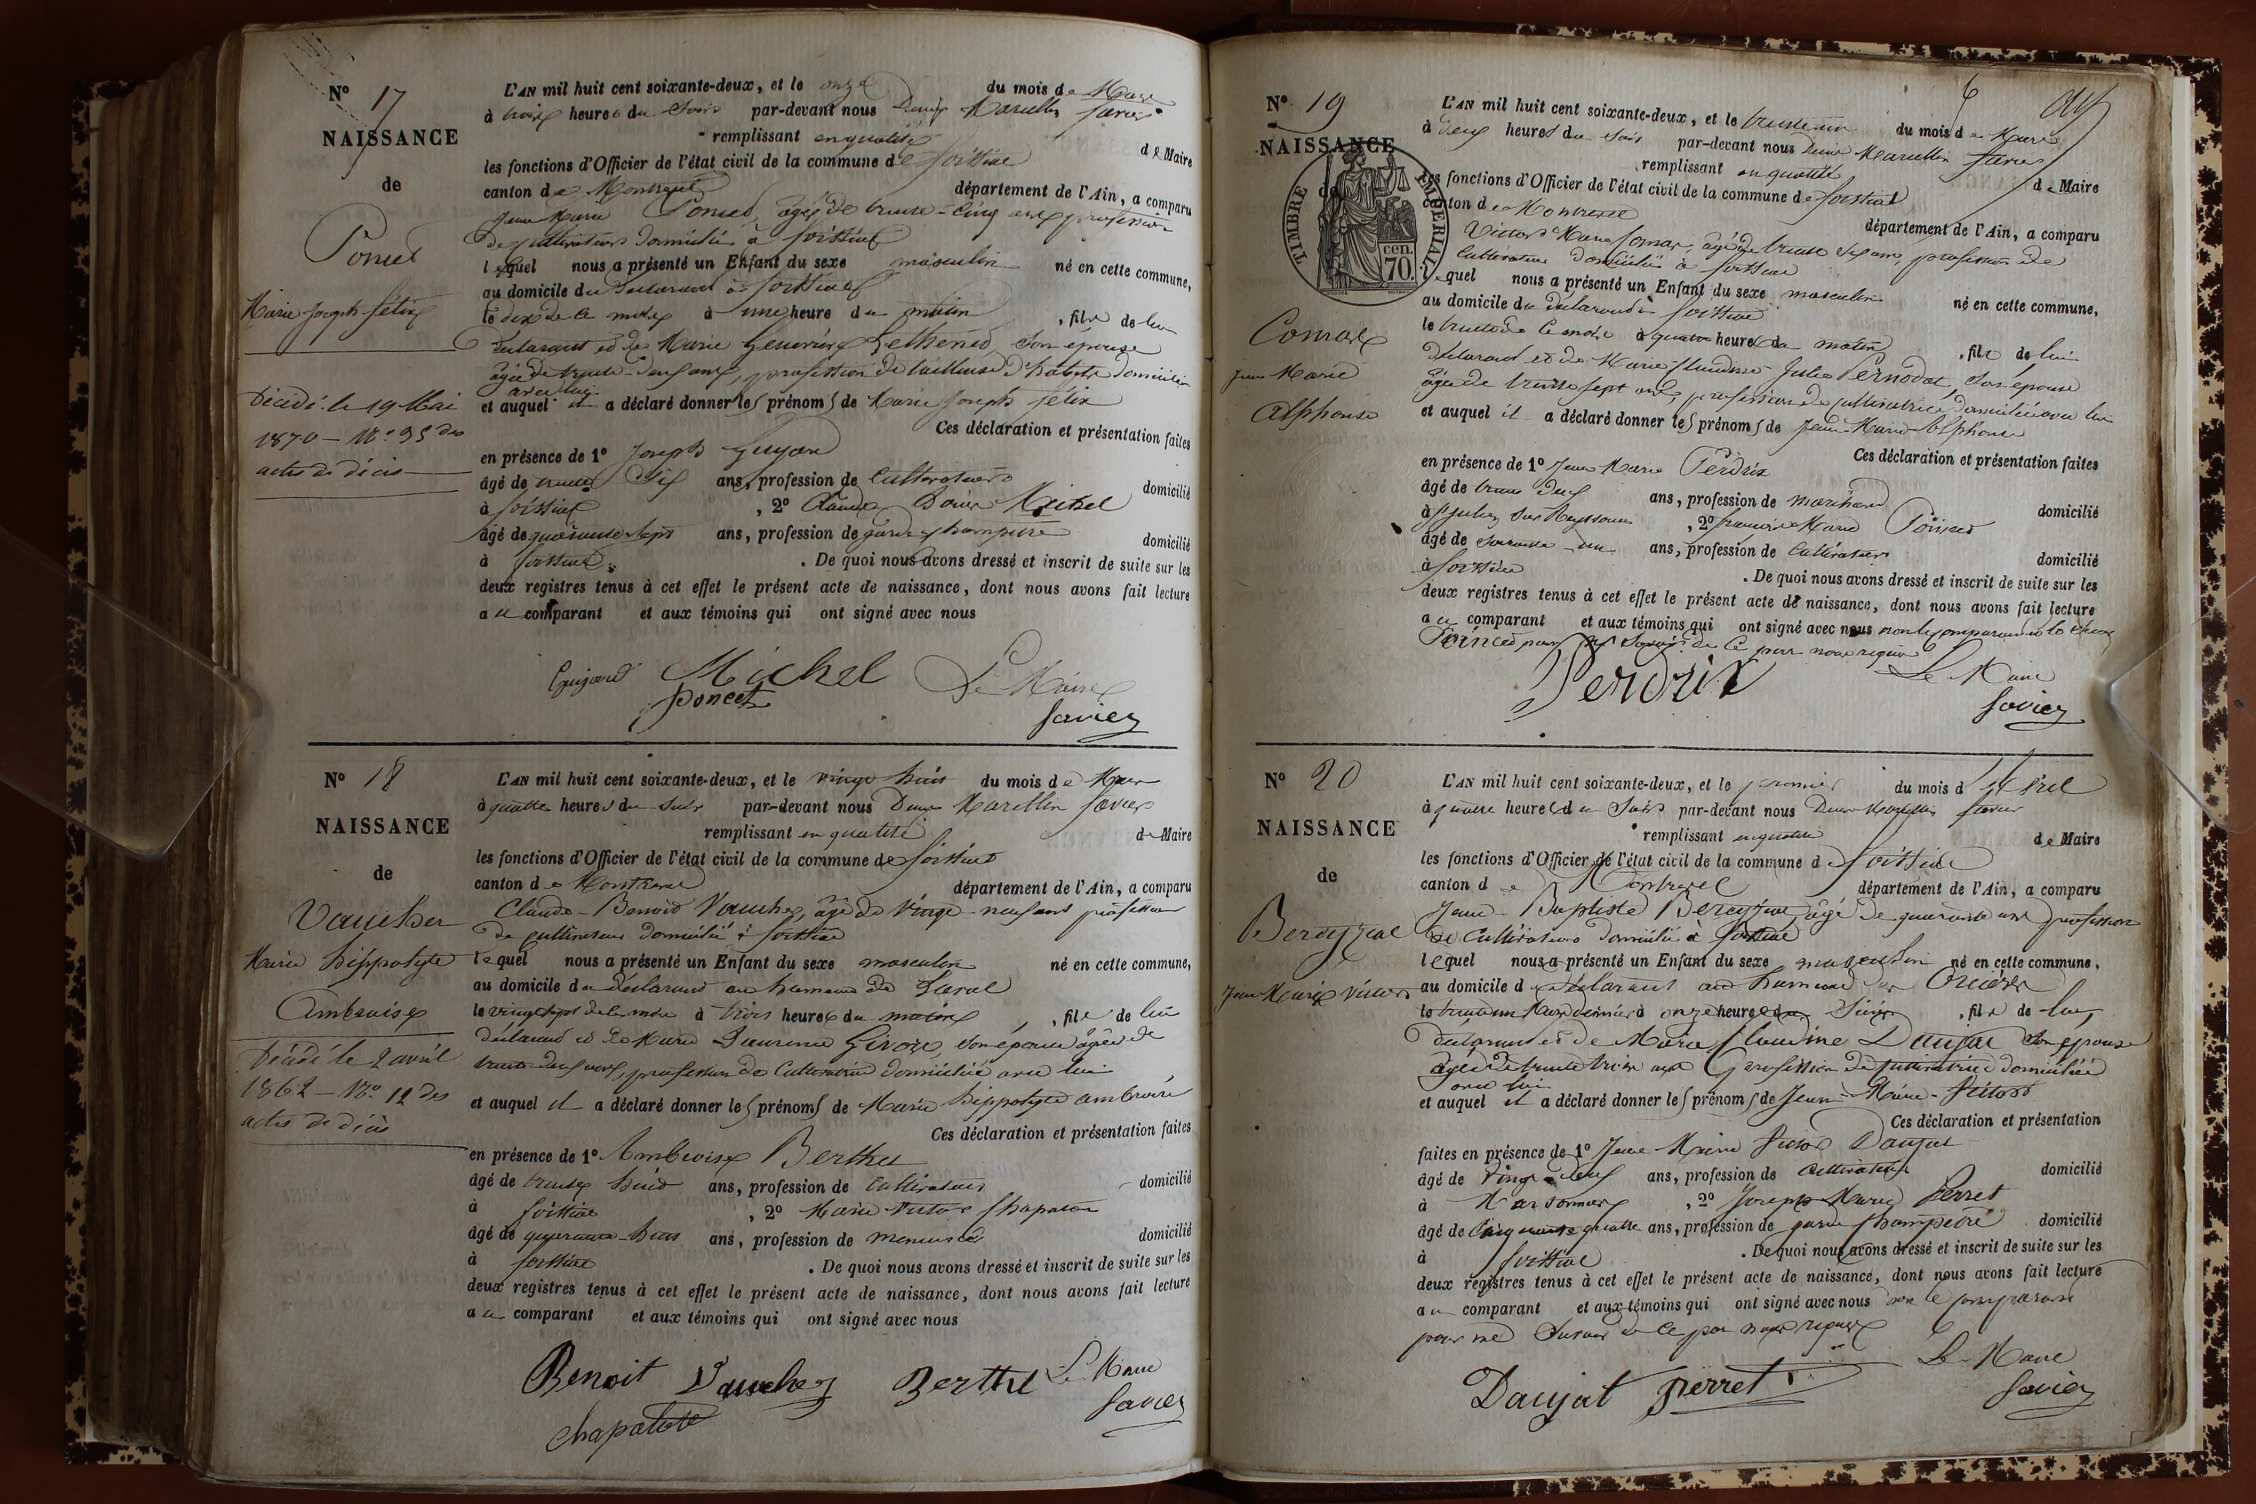 N° 17
NAISSANCE
de
Poncet
Marie Joseph Félix
Décédé le 19 Mai
1870 — N° 35 des
actes de décès
L'AN mil huit cent soixante-deux, et le onze du mois de Mars
à trois heures du soir par-devant nous Denis Marcellin Favier
remplissant en qualité de Maire
les fonctions d'Officier de l'état civil de la commune de Foissiat
canton de Montrevel département de l'Ain, a comparu
Jean Marie Poncet, âgé de trente-cinq ans profession
de cultivateur domicilié à Foissiat
lequel nous a présenté un Enfant du sexe masculin né en cette commune,
au domicile du déclarant à Foissiat
le dix de ce mois à une heure du matin, fils de lui
déclarant et de Marie Geneviève son épouse
âgée de trente-deux ans, profession de tailleuse d'habits domiciliée
avec lui
et auquel il a déclaré donner les prénoms de Marie Joseph Félix
Ces déclaration et présentation faites
en présence de 1° Joseph Guyon
âgé de trente six ans, profession de cultivateur domicilié
à Foissiat, 2° Claude Michel
âgé de quarante sept ans, profession de garde champêtre domicilié
à Foissiat. De quoi nous avons dressé et inscrit de suite sur les
deux registres tenus à cet effet le présent acte de naissance, dont nous avons fait lecture
au comparant et aux témoins qui ont signé avec nous
Michel Le Maire
Poncet Favier
N° 18
NAISSANCE
de
Vaucher
Marie hippolyte
Ambroise
Décédé le 2 avril
1862 — N° 12 des
actes de décès
L'AN mil huit cent soixante-deux, et le vingt huit du mois de Mars
à quatre heures du soir par-devant nous Denis Marcellin Favier
remplissant en qualité de Maire
les fonctions d'Officier de l'état civil de la commune de Foissiat
canton de Montrevel département de l'Ain, a comparu
Claude-Benoit Vaucher, âgé de vingt-neuf ans profession
de cultivateur domicilié à Foissiat
lequel nous a présenté un Enfant du sexe masculin né en cette commune,
au domicile du déclarant au hameau de
le vingt sept de ce mois à trois heures du matin, fils de lui
déclarant et de Marie Laurence son épouse âgée de
trente deux ans, profession de cultivatrice domiciliée avec lui
et auquel il a déclaré donner les prénoms de Marie hippolyte ambroise
Ces déclaration et présentation faites
en présence de 1° Ambroise Berthet
âgé de trente huit ans, profession de cultivateur domicilié
à Foissiat, 2° Marie Victor Chapaton
âgé de quarante-huit ans, profession de menuisier domicilié
à Foissiat. De quoi nous avons dressé et inscrit de suite sur les
deux registres tenus à cet effet le présent acte de naissance, dont nous avons fait lecture
au comparant et aux témoins qui ont signé avec nous
Benoit Vaucher Berthet Le Maire
Chapaton Favier
6
N° 19
NAISSANCE
de
TIMBRE IMPERIAL
70 cen.
Comas
Jean Marie
Alphonse
L'AN mil huit cent soixante-deux, et le trente un du mois de Mars
à deux heures du soir par-devant nous Denis Marcellin Favier
remplissant en qualité de Maire
les fonctions d'Officier de l'état civil de la commune de Foissiat
canton de Montrevel département de l'Ain, a comparu
Victor Marie Comas, âgé de trente sept ans, profession de
cultivateur domicilié à Foissiat
lequel nous a présenté un Enfant du sexe masculin né en cette commune,
au domicile du déclarant à Foissiat
le trente de ce mois à quatre heures du matin, fils de lui
déclarant et de Marie Claudine Julie Pernodat, son épouse
âgée de trente sept ans, profession de cultivatrice domiciliée avec lui
et auquel il a déclaré donner les prénoms de Jean-Marie-Alphonse
Ces déclaration et présentation faites
en présence de 1° Jean Marie Perdrix
âgé de trente deux ans, profession de marchand domicilié
à St Julien sur Reyssouze, 2° françois Marie Poncet
âgé de soixante-un ans, profession de cultivateur domicilié
à Foissiat. De quoi nous avons dressé et inscrit de suite sur les
deux registres tenus à cet effet le présent acte de naissance, dont nous avons fait lecture
au comparant et aux témoins qui ont signé avec nous non le comparant et le témoin
Poncet pour ne savoir de ce par nous requis
Perdrix Le Maire
Favier
N° 20
NAISSANCE
de
Bereyziat
Jean Marie Victor
L'AN mil huit cent soixante-deux, et le premier du mois d'Avril
à quatre heures du soir par-devant nous Denis Marcellin Favier
remplissant en qualité de Maire
les fonctions d'Officier de l'état civil de la commune de Foissiat
canton de Montrevel département de l'Ain, a comparu
Jean-Baptiste Bereyziat, âgé de quarante ans profession
de cultivateur domicilié à Foissiat
lequel nous a présenté un Enfant du sexe masculin né en cette commune,
au domicile du déclarant au hameau des
le trente un Mars dernier à onze heures du soir, fils de lui
déclarant et de Marie Claudine Daujat son épouse
âgée de trente trois ans profession de cultivatrice domiciliée
avec lui
et auquel il a déclaré donner les prénoms de Jean-Marie-Victor
Ces déclaration et présentation
faites en présence de 1° Jean Marie Victor Daujat
âgé de vingt-deux ans, profession de cultivateur domicilié
à Marsonnas, 2° Joseph Marie Perret
âgé de cinquante quatre ans, profession de garde champêtre domicilié
à Foissiat. De quoi nous avons dressé et inscrit de suite sur les
deux registres tenus à cet effet le présent acte de naissance, dont nous avons fait lecture
au comparant et aux témoins qui ont signé avec nous non le comparant
pour ne savoir de ce par nous requis
Daujat Perret Le Maire
Favier